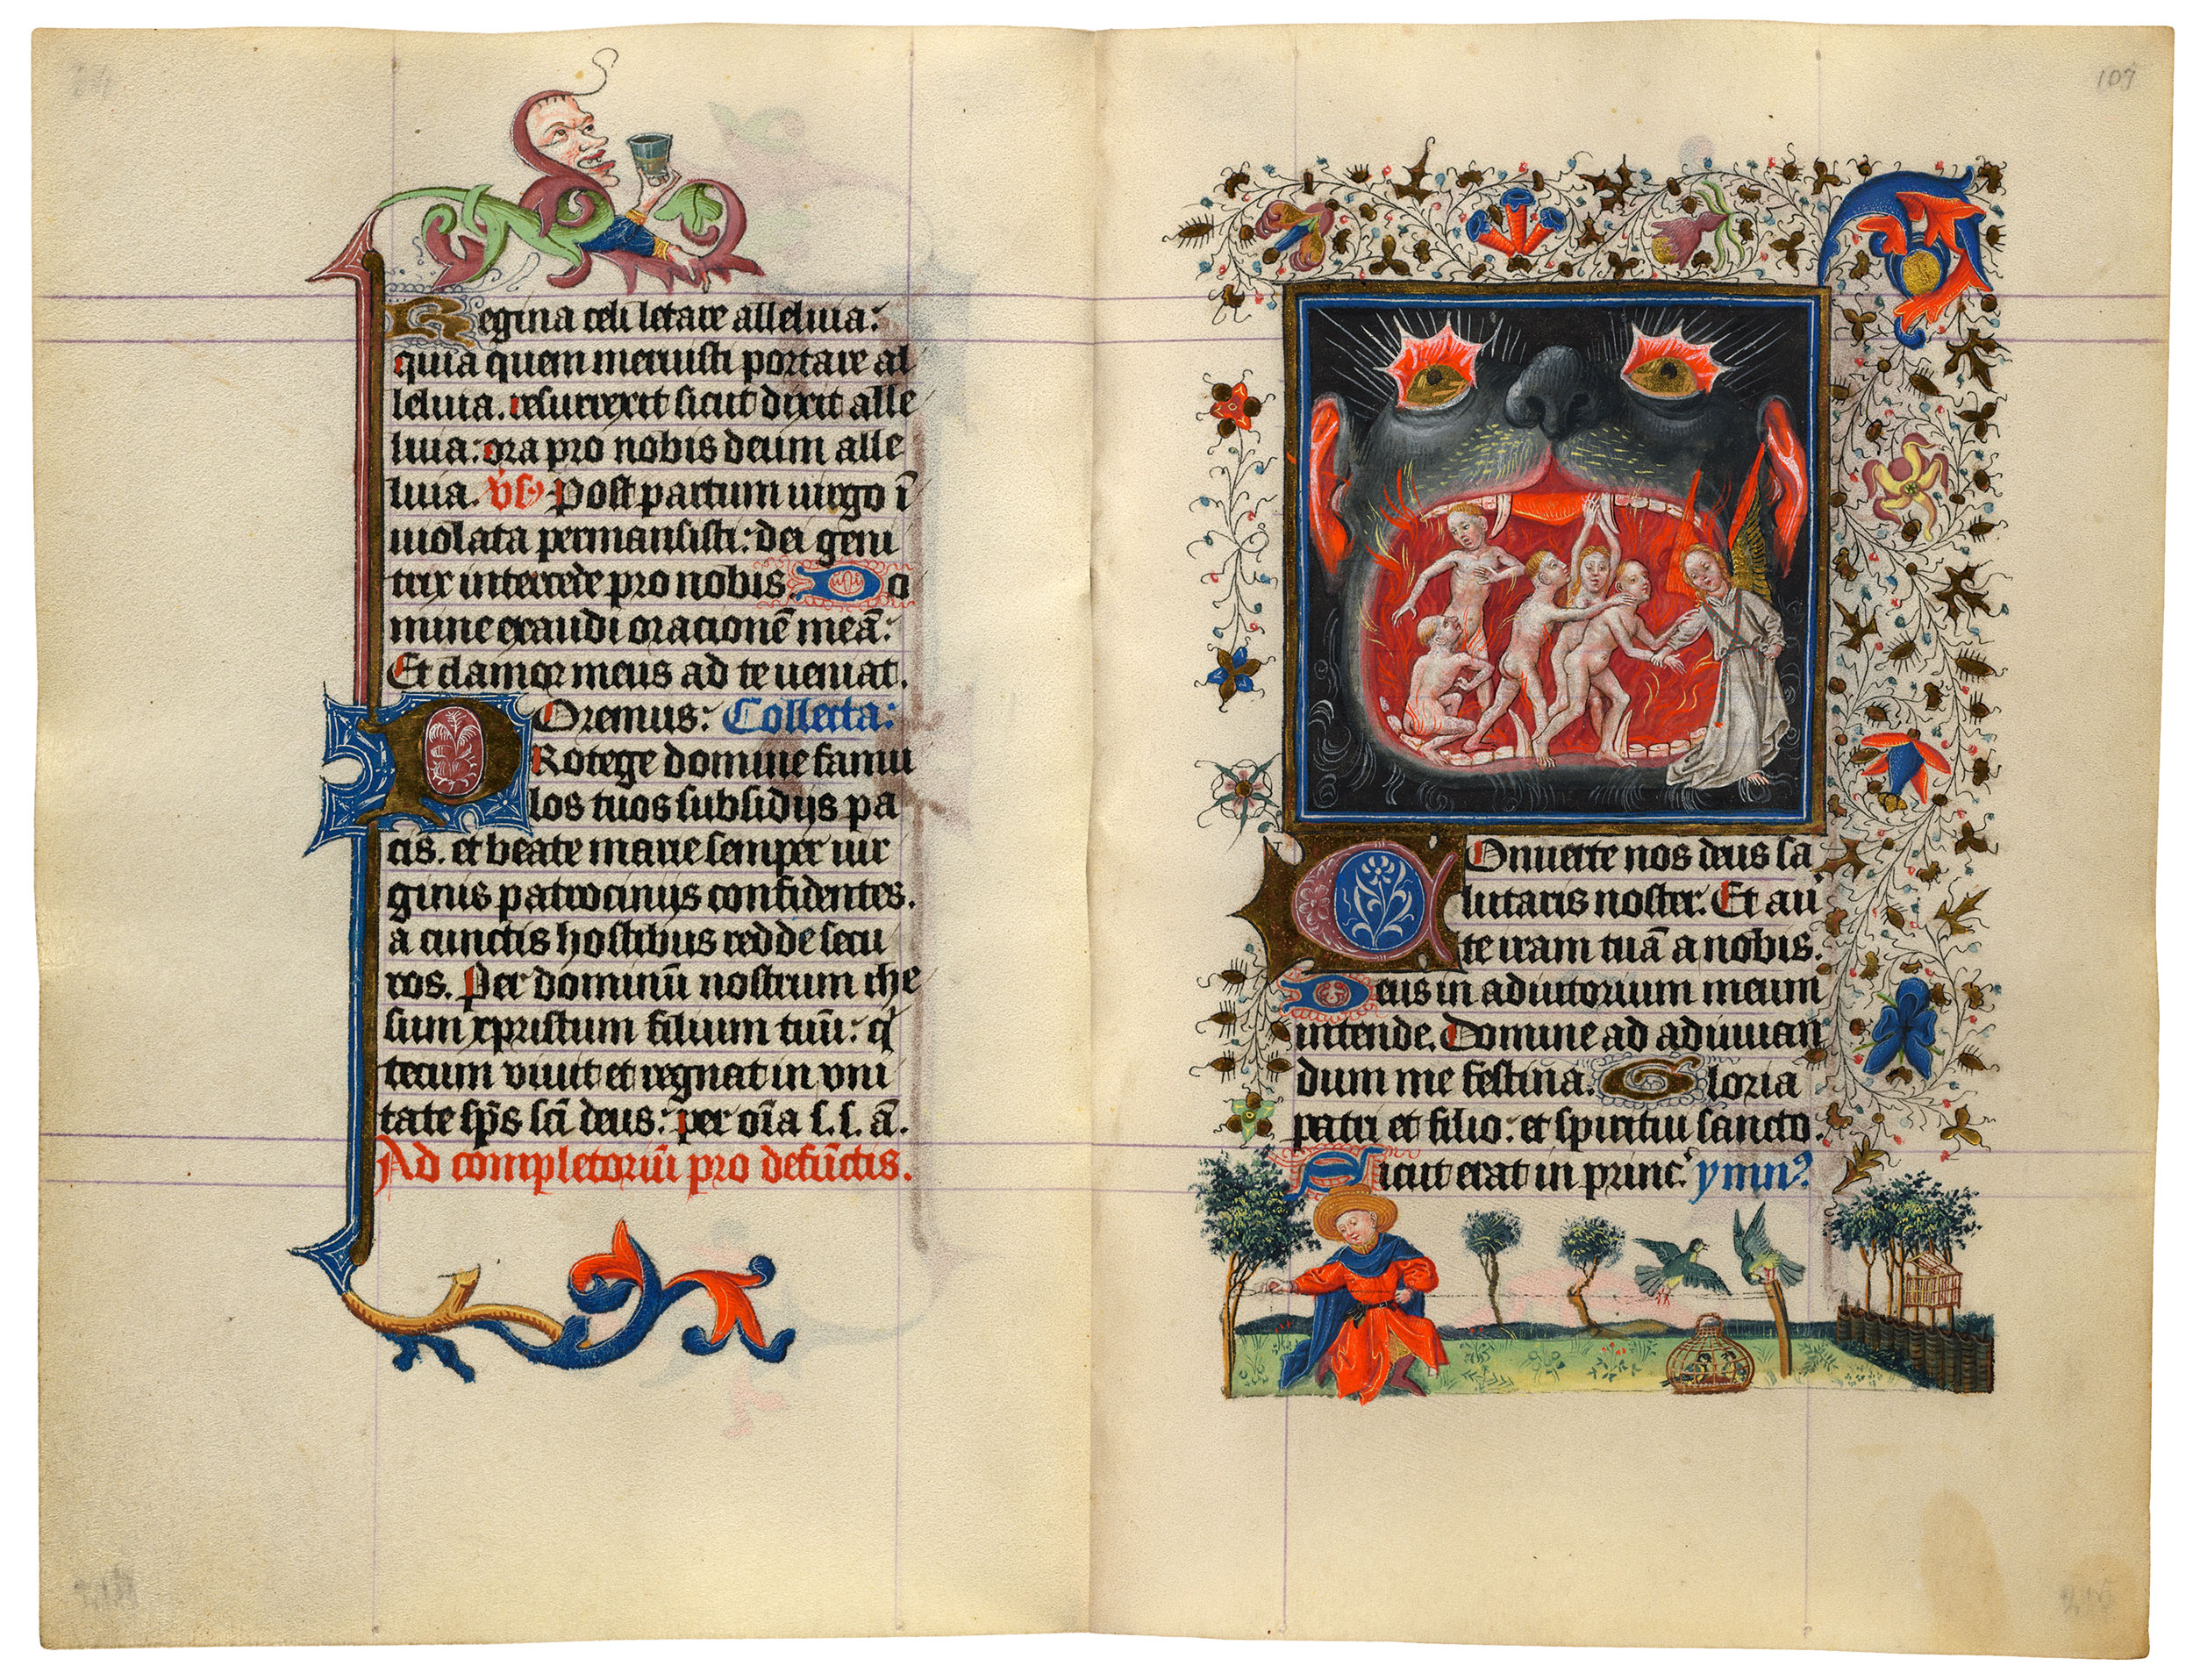 Regina celi letare alleluia:
quia quem meruisti portare al
leluia. resurrexit sicut dixit alle
luia: ora pro nobis deum alle
luia. vs. Post partum uirgo ī
uiolata permansisti: dei geni
trix intercede pro nobis. Do
mine exaudi oracionē meā:
Et clamor meus ad te ueniat.
Oremus: Collecta:
PRotege domine famu
los tuos subsidijs pa
cis. et beate marie semper uir
ginis patrocinijs confidentes.
a cunctis hostibus redde secu
ros. Per dominū nostrum ihe
sum xpristum filium tuū: q̄
tecum viuit et regnat in vni
tate sp̄s sc̄i deus: per oīa s. s. ā.
Ad completoriū pro defūctis.
107
COnuerte nos deus sa
lutaris noster. Et auer
te iram tuā a nobis.
Deus in adiutorium meum
intende. Domine ad adiuuan
dum me festina. Gloria
patri et filio: et spiritui sancto.
Sicut erat in princ. ymn9